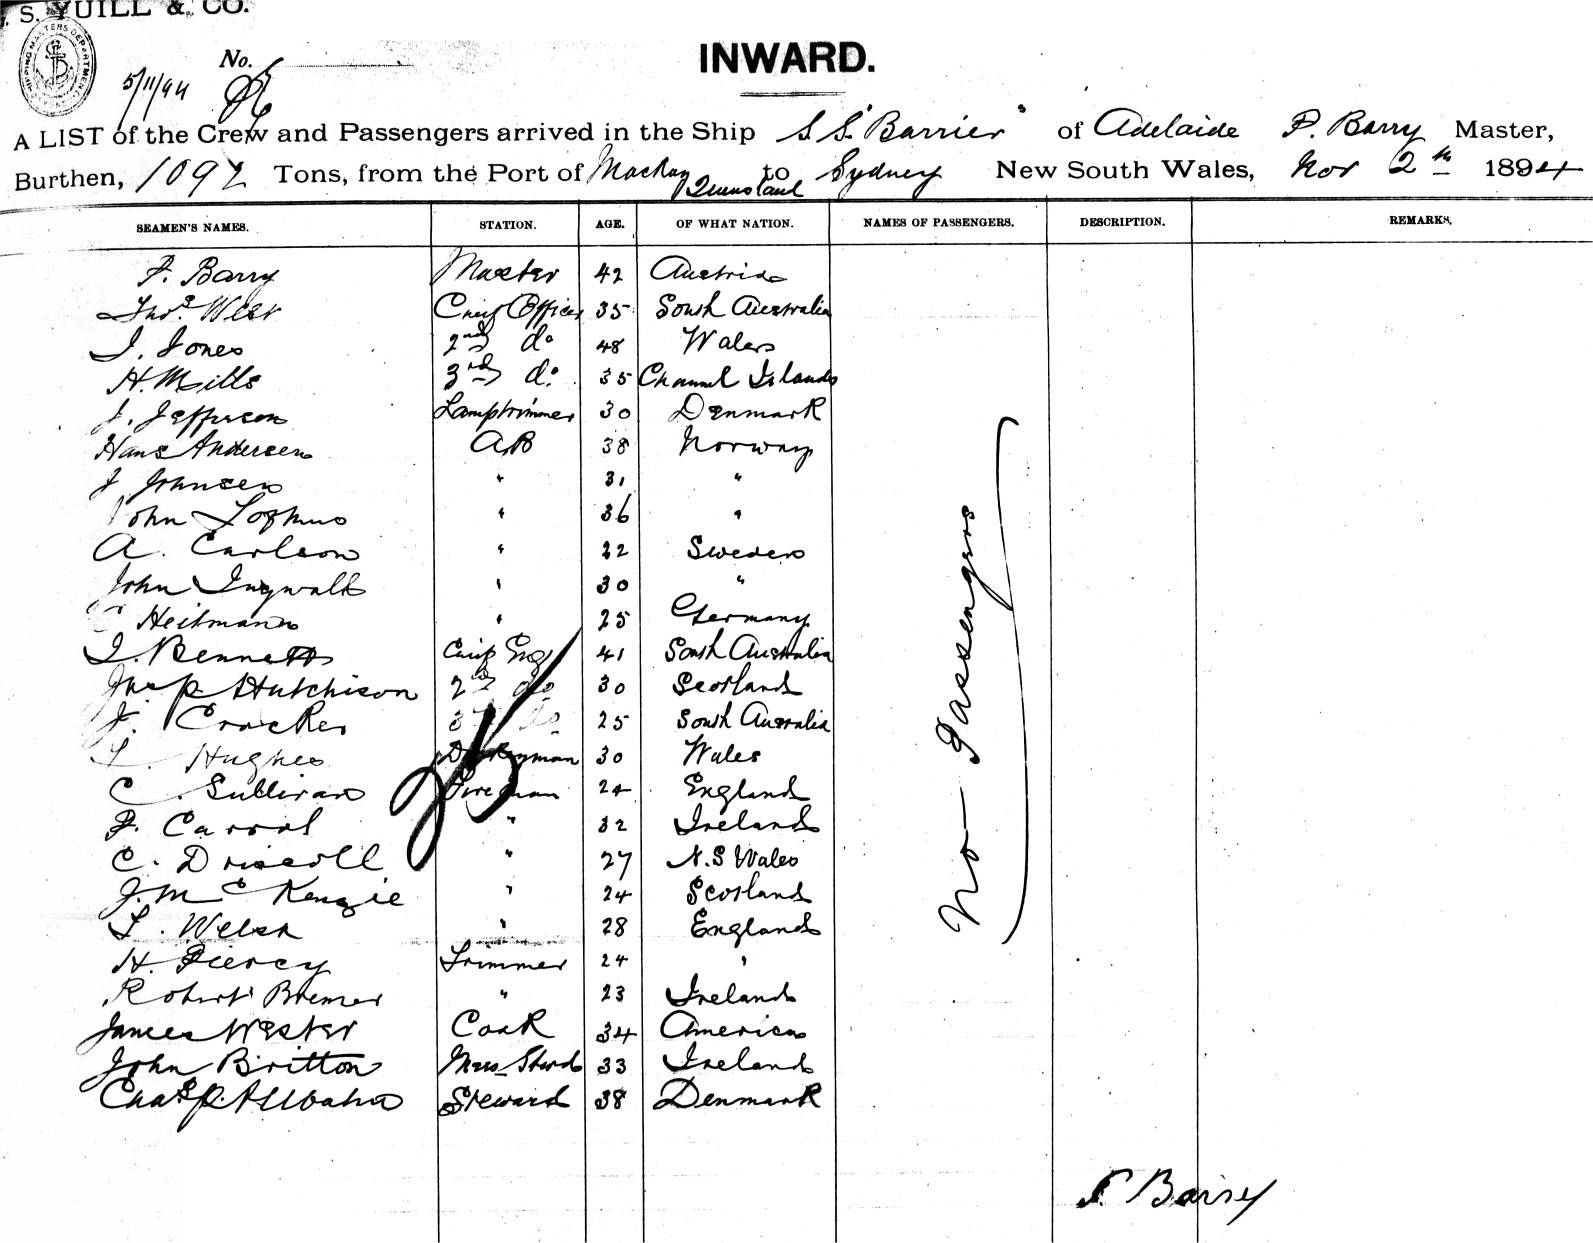 S. YUILL & CO.
No.
5/11/94
INWARD.
A LIST of the Crew and Passengers arrived in the Ship S.S. "Barrier" of Adelaide P. Barry Master,
Burthen, 1092 Tons, from the Port of Mackay Queensland to Sydney New South Wales, Nov 2nd 1894
SEAMEN'S NAMES. STATION. AGE. OF WHAT NATION. NAMES OF PASSENGERS. DESCRIPTION. REMARKS.
P. Barry Master 42 Austria
Thos. West Chief Officer 35 South Australia
J. Jones 2nd do 48 Wales
H. Mills 3rd do. 35 Channel Islands
J. Jefferson Lamptrimmer 30 Denmark
Hans Andersen AB 38 Norway
J Johnsen " 31 "
John Lofhus " 36 "
A. Carlson " 22 Sweden
John Ingwall " 30 "
C Heitmann " 25 Germany
J. Bennett Chief Eng 41 South Australia
Jas P Hutchison 2nd do 30 Scotland
J. Crocker 3rd do 25 South Australia
L. Hughes Donkeyman 30 Wales
C. Sullivan Fireman 24 England
F. Carrol " 32 Ireland
C. Driscoll " 27 N.S Wales
J. McKenzie " 24 Scotland
L. Welsh " 28 England
H. Piercy Trimmer 24 "
Robert Bremer " 23 Ireland
James Wester Cook 34 America
John Britton Mess Stwd 33 Ireland
Chas P. Steward 38 Denmark
No Passengers
P Barry